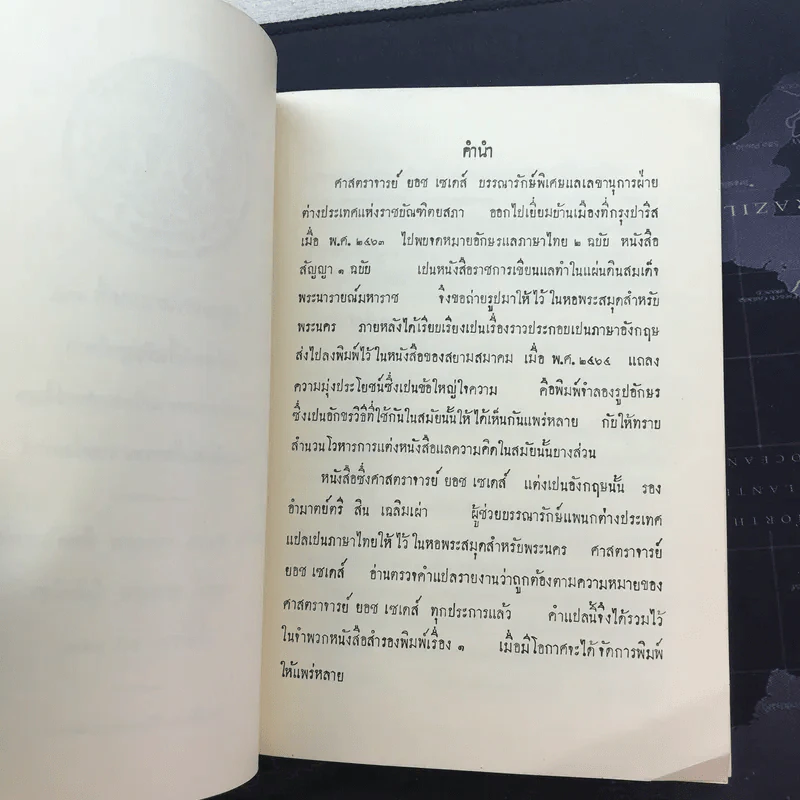 คำนำ
ศาสตราจารย์ ยอช เซเดส์ บรรณารักษ์พิเศษแลเลขานุการฝ่าย
ต่างประเทศแห่งราชบัณฑิตยสภา ออกไปเยี่ยมบ้านเมืองที่กรุงปารีส
เมื่อ พ.ศ. ๒๔๖๓ ไปพบจดหมายอักษรแลภาษาไทย ๒ ฉบับ หนังสือ
สัญญา ๑ ฉบับ เป็นหนังสือราชการเขียนแลทำในแผ่นดินสมเด็จ
พระนารายณ์มหาราช จึงขอถ่ายรูปมาให้ไว้ในหอพระสมุดสำหรับ
พระนคร ภายหลังได้เรียบเรียงเป็นเรื่องราวประกอบเป็นภาษาอังกฤษ
ส่งไปลงพิมพ์ไว้ในหนังสือของสยามสมาคม เมื่อ พ.ศ. ๒๔๖๔ แถลง
ความมุ่งประโยชน์ซึ่งเป็นข้อใหญ่ใจความ คือพิมพ์จำลองรูปอักษร
ซึ่งเป็นอักขรวิธีที่ใช้กันในสมัยนั้นให้ได้เห็นกันแพร่หลาย กับให้ทราบ
สำนวนโวหารการแต่งหนังสือแลความคิดในสมัยนั้นบางส่วน
หนังสือซึ่งศาสตราจารย์ ยอช เซเดส์ แต่งเป็นอังกฤษนั้น รอง
อำมาตย์ตรี สิน เฉลิมเผ่า ผู้ช่วยบรรณารักษ์แพนกต่างประเทศ
แปลเป็นภาษาไทยให้ไว้ในหอพระสมุดสำหรับพระนคร ศาสตราจารย์
ยอช เซเดส์ อ่านตรวจคำแปลรายงานว่าถูกต้องตามความหมายของ
ศาสตราจารย์ ยอช เซเดส์ ทุกประการแล้ว คำแปลนี้จึงได้รวมไว้
ในจำพวกหนังสือสำรองพิมพ์เรื่อง ๑ เมื่อมีโอกาศจะได้จัดการพิมพ์
ให้แพร่หลาย